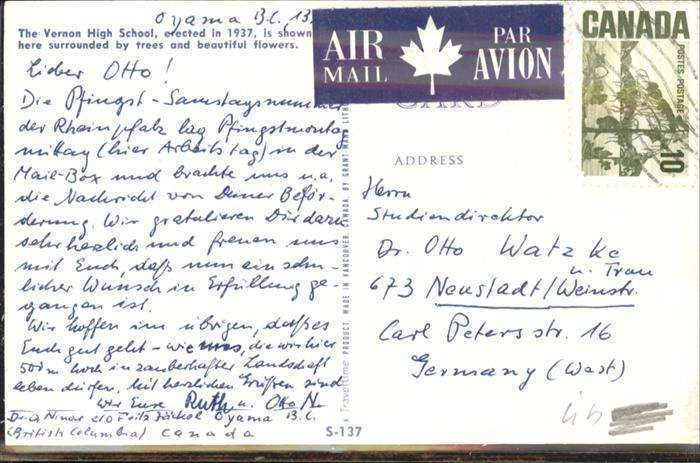 Oyama B.C. 13.
The Vernon High School, erected in 1937, is shown
here surrounded by trees and beautiful flowers.
Lieber Otto!
Die Pfingst-Samstagsnummer
der Rheinpfalz lag Pfingstmontag
mittag (hier Arbeitstag) in der
Mail-Box und brachte uns u.a.
die Nachricht von Deiner Beför-
derung. Wir gratulieren Dir dazu
sehr herzlich und freuen uns
mit Euch, daß nun ein sehn-
licher Wunsch in Erfüllung ge-
gangen ist.
Wir hoffen im übrigen, daß es
Euch gut geht - wie uns, die wir hier
500m hoch in zauberhafter Landschaft
leben dürfen. Mit herzlichen Grüßen sind
wir Eure Ruth u. Otto N
c/o Fritz Jäckel Oyama B.C.
(British Columbia) Canada
S-137
Traveltime PRODUCT. MADE IN VANCOUVER, CANADA, BY GRANT-MANN LITH
AIR MAIL
PAR AVION
CARD
ADDRESS
CANADA
POSTES-POSTAGE
10
Herrn
Studiendirektor
Dr. Otto Watzke
u. Frau
673 Neustadt/Weinstr.
Carl Petersstr. 16
Germany (West)